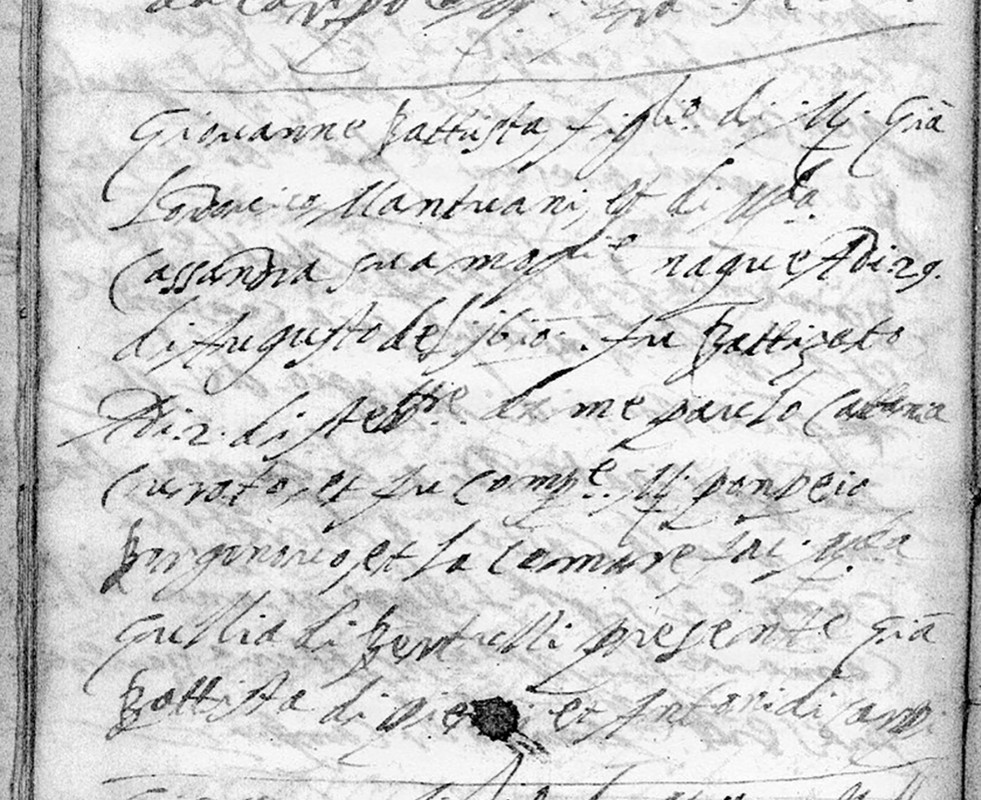 Giovanne Battista figlio di M. Giã
Lodovico Mantuani, et di M.a
Cassandra sua moglie naque Adi 29.
di Augusto del fu Battizato
Adi 2. di settbre da me paulo
Currato, et fu compe. M. pompeio
Borgonovo, et la Comare fu
Giullia di Bertielli presente Giã
Battista di et Antoni di